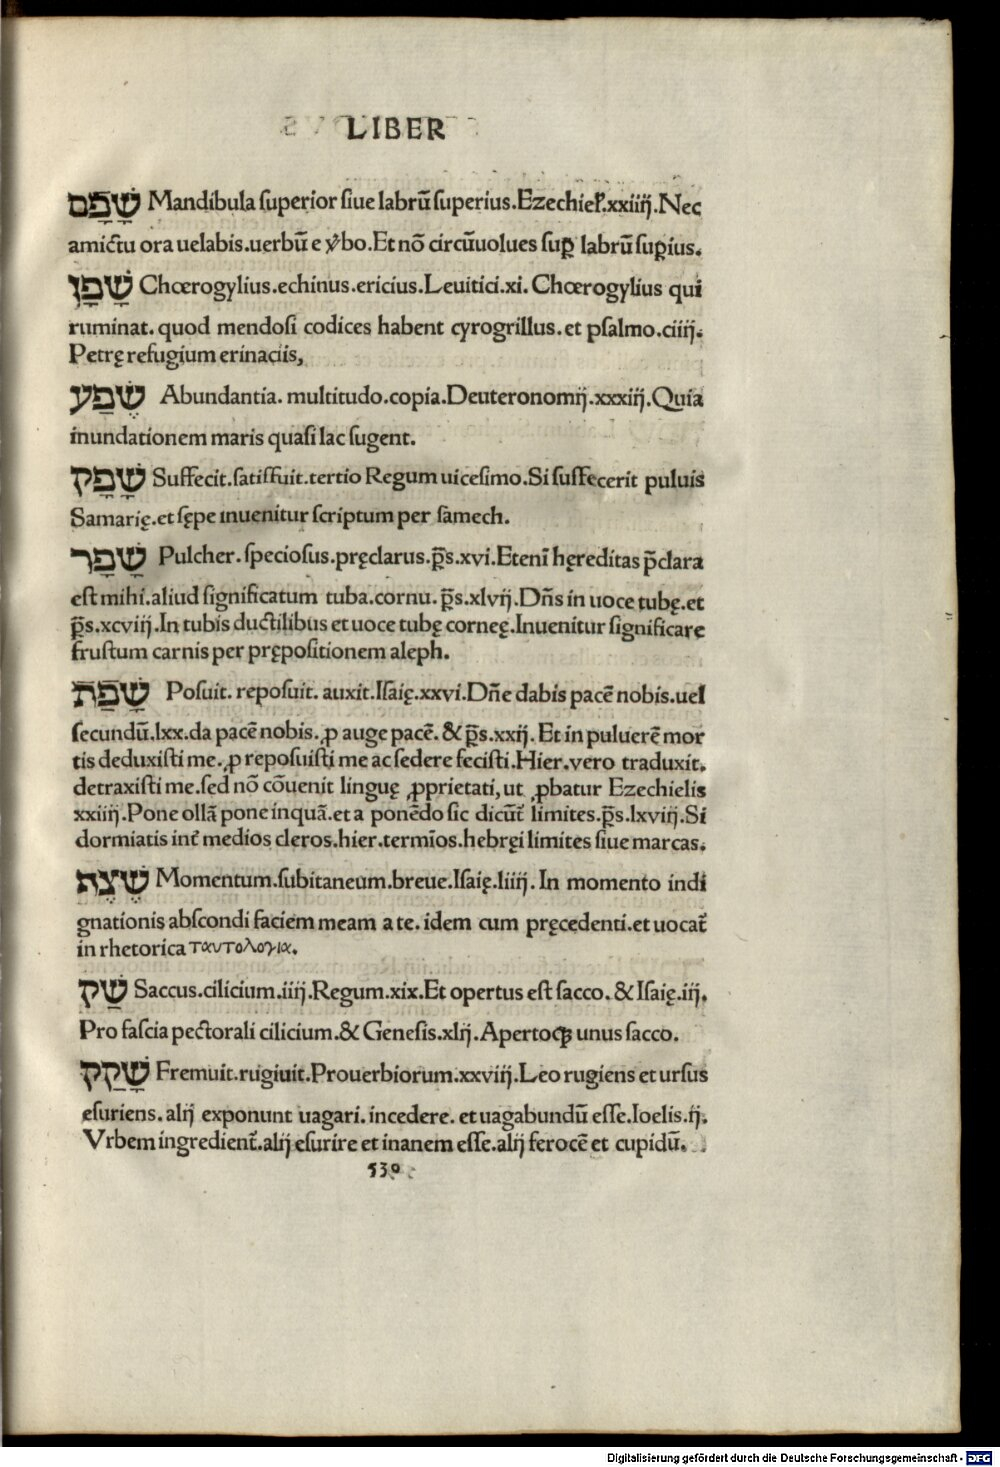 LIBER
שָׂפָם Mandibula ſuperior ſiue labrū ſuperius. Ezechieł. xxiiij. Nec
amictu ora uelabis. uerbū e ỽbo. Et nō circūuolues ſuꝑ labrū ſuꝑius.
שָׁפָן Chœrogylius. echinus. ericius. Leuitici. xi. Chœrogylius qui
ruminat. quod mendoſi codices habent cyrogrillus. et pſalmo. ciiij.
Petrę refugium erinaciis,
שֶׁפַע Abundantia. multitudo. copia. Deuteronomij. xxxiij. Quia
inundationem maris quaſi lac ſugent.
שָׂפַק Suffecit. ſatiſfuit. tertio Regum uiceſimo. Si ſuffecerit puluis
Samarię. et ſępe inuenitur ſcriptum per ſamech.
שָׁפַר Pulcher. ſpecioſus. pręclarus. p̄s. xvi. Etenī hęreditas p̄clara
eſt mihi. aliud ſignificatum tuba. cornu. p̄s. xlvij. Dn̄s in uoce tubę. et
p̄s. xcviij. In tubis ductilibus et uoce tubę corneę. Inuenitur ſignificare
fruſtum carnis per prępoſitionem aleph.
שָׁפַת Poſuit. repoſuit. auxit. Iſaię. xxvi. Dn̄e dabis pacē nobis. uel
ſecundū. lxx. da pacē nobis. ꝓ auge pacē. & p̄s. xxij. Et in puluerē mor
tis deduxiſti me. ꝓ repoſuiſti me ac ſedere feciſti. Hier. vero traduxit.
detraxiſti me. ſed nō cōuenit linguę ꝓprietati, ut ꝓbatur Ezechielis
xxiiij. Pone ollā pone inquā. et a ponēdo ſic dicūt̄ limites. p̄s. lxviij. Si
dormiatis int̄ medios cleros. hier. termīos. hebręi limites ſiue marcas.
שֶׁצֶף Momentum. ſubitaneum. breue. Iſaię. liiij. In momento indi
gnationis abſcondi faciem meam a te. idem cum pręcedenti. et uocat̄
in rhetorica ταυτολογια.
שַׂק Saccus. cilicium. iiij. Regum. xix. Et opertus eſt ſacco. & Iſaię. iij.
Pro faſcia pectorali cilicium. & Geneſis. xlij. Apertoqꝫ unus ſacco.
שָׁקַק Fremuit. rugiuit. Prouerbiorum. xxviij. Leo rugiens et urſus
eſuriens. alij exponunt uagari. incedere. et uagabundū eſſe. Ioelis. ij.
Vrbem ingredient̄. alij eſurire et inanem eſſe. alij ferocē et cupidū.
530
Digitalisierung gefördert durch die Deutsche Forschungsgemeinschaft - DFG